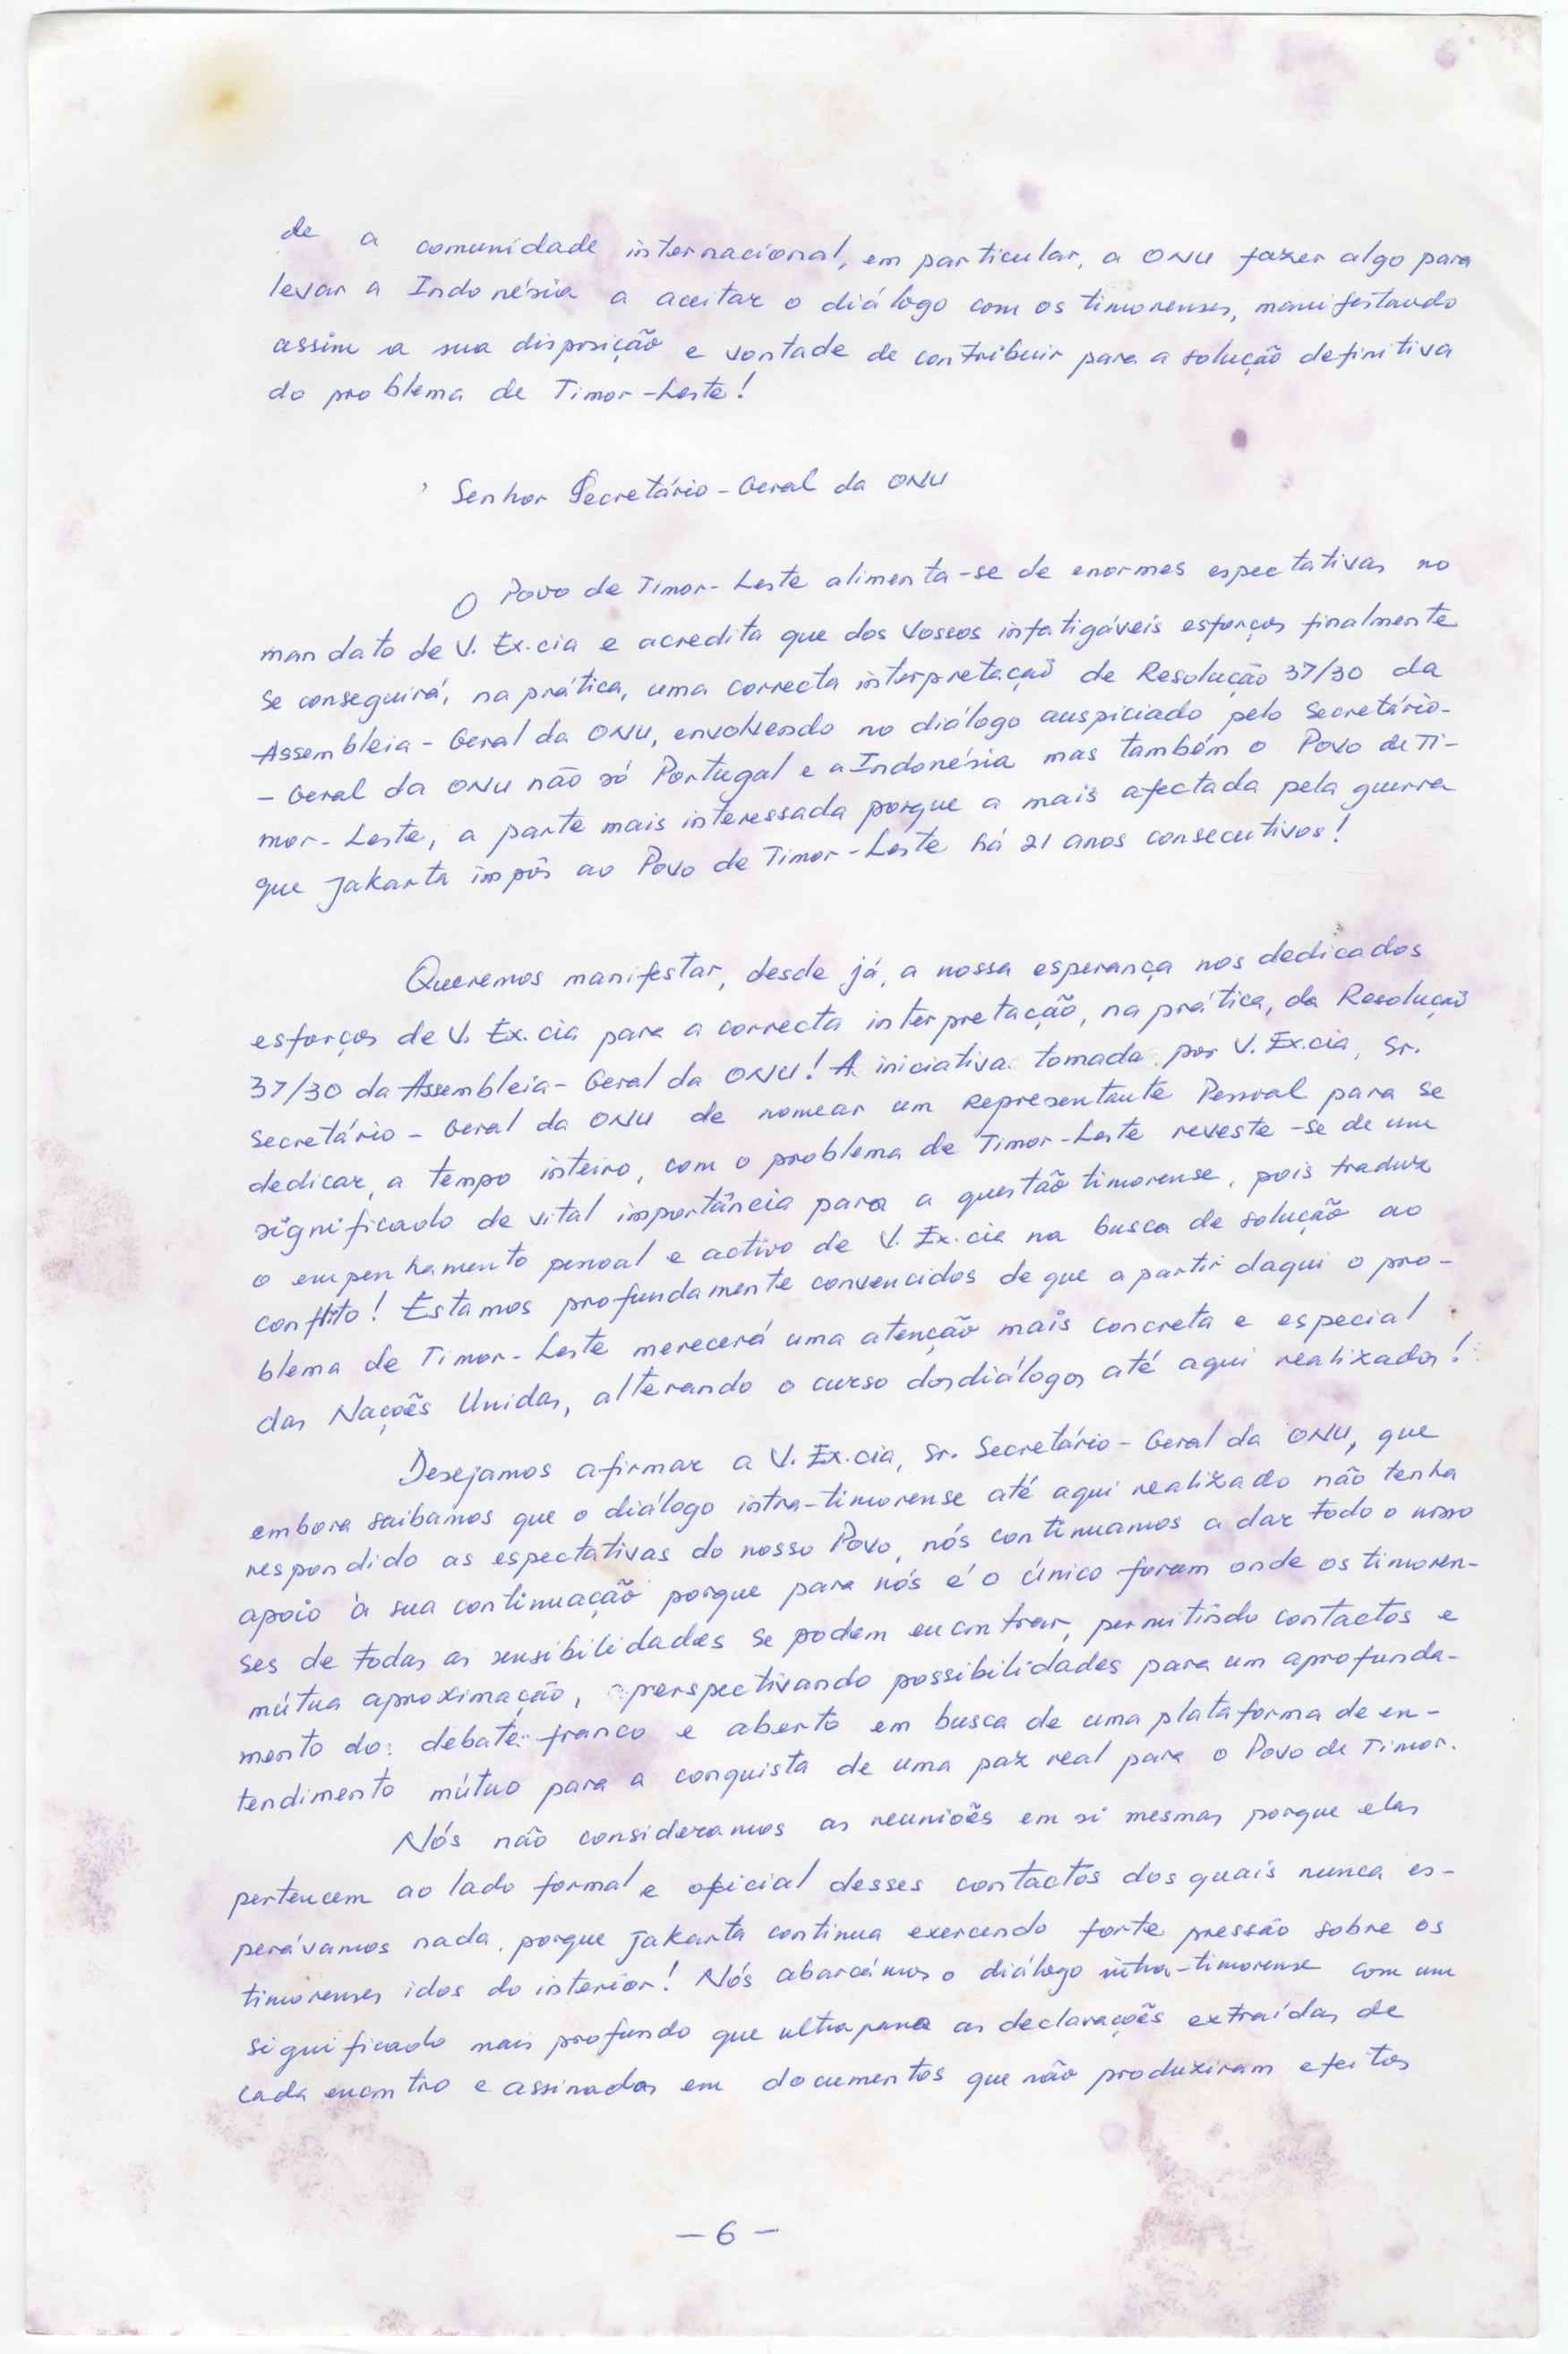 de a comunidade internacional, em particular, a ONU fazer algo para
levar a Indonésia a aceitar o diálogo com os timorenses, manifestando
assim a sua disposição e vontade de contribuir para a solução definitiva
do problema de Timor-Leste!
Senhor Secretário-Geral da ONU
O Povo de Timor-Leste alimenta-se de enormes espectativas no
mandato de V. Ex.cia e acredita que dos Vossos infatigáveis esforços finalmente
se conseguirá, na prática, uma correcta interpretação de Resolução 37/30 da
Assembleia-Geral da ONU, envolvendo no diálogo auspiciado pelo Secretário-
-Geral da ONU não só Portugal e a Indonésia mas também o Povo de Ti-
mor-Leste, a parte mais interessada porque a mais afectada pela guerra
que Jakarta impôs ao Povo de Timor-Leste há 21 anos consecutivos!
Queremos manifestar, desde já, a nossa esperança nos dedicados
esforços de V. Ex.cia para a correcta interpretação, na prática, da Resolução
37/30 da Assembleia-Geral da ONU! A iniciativa tomada por V. Ex.cia, Sr.
Secretário-Geral da ONU de nomear um Representante Pessoal para se
dedicar, a tempo inteiro, com o problema de Timor-Leste reveste-se de um
significado de vital importância para a questão timorense, pois traduz
o empenhamento pessoal e activo de V. Ex.cia na busca de solução ao
conflito! Estamos profundamente convencidos de que a partir daqui o pro-
blema de Timor-Leste merecerá uma atenção mais concreta e especial
das Nações Unidas, alterando o curso dos diálogos até aqui realizados!
Desejamos afirmar a V. Ex.cia, Sr. Secretário-Geral da ONU, que
embora saibamos que o diálogo intra-timorense até aqui realizado não tenha
respondido as espectativas do nosso Povo, nós continuamos a dar todo o nosso
apoio à sua continuação porque para nós é o único forum onde os timoren-
ses de todas as sensibilidades se podem encontrar, permitindo contactos e
mútua aproximação, perspectivando possibilidades para um aprofunda-
mento do debate franco e aberto em busca de uma plataforma de en-
tendimento mútuo para a conquista de uma paz real para o Povo de Timor.
Nós não consideramos as reuniões em si mesmas porque elas
pertencem ao lado formal e oficial desses contactos dos quais nunca es-
perávamos nada, porque Jakarta continua exercendo forte pressão sobre os
timorenses idos do interior! Nós abarcámos o diálogo intra-timorense com um
significado mais profundo que ultrapassa as declarações extraídas de
cada encontro e assinadas em documentos que não produziram efeitos
- 6 -